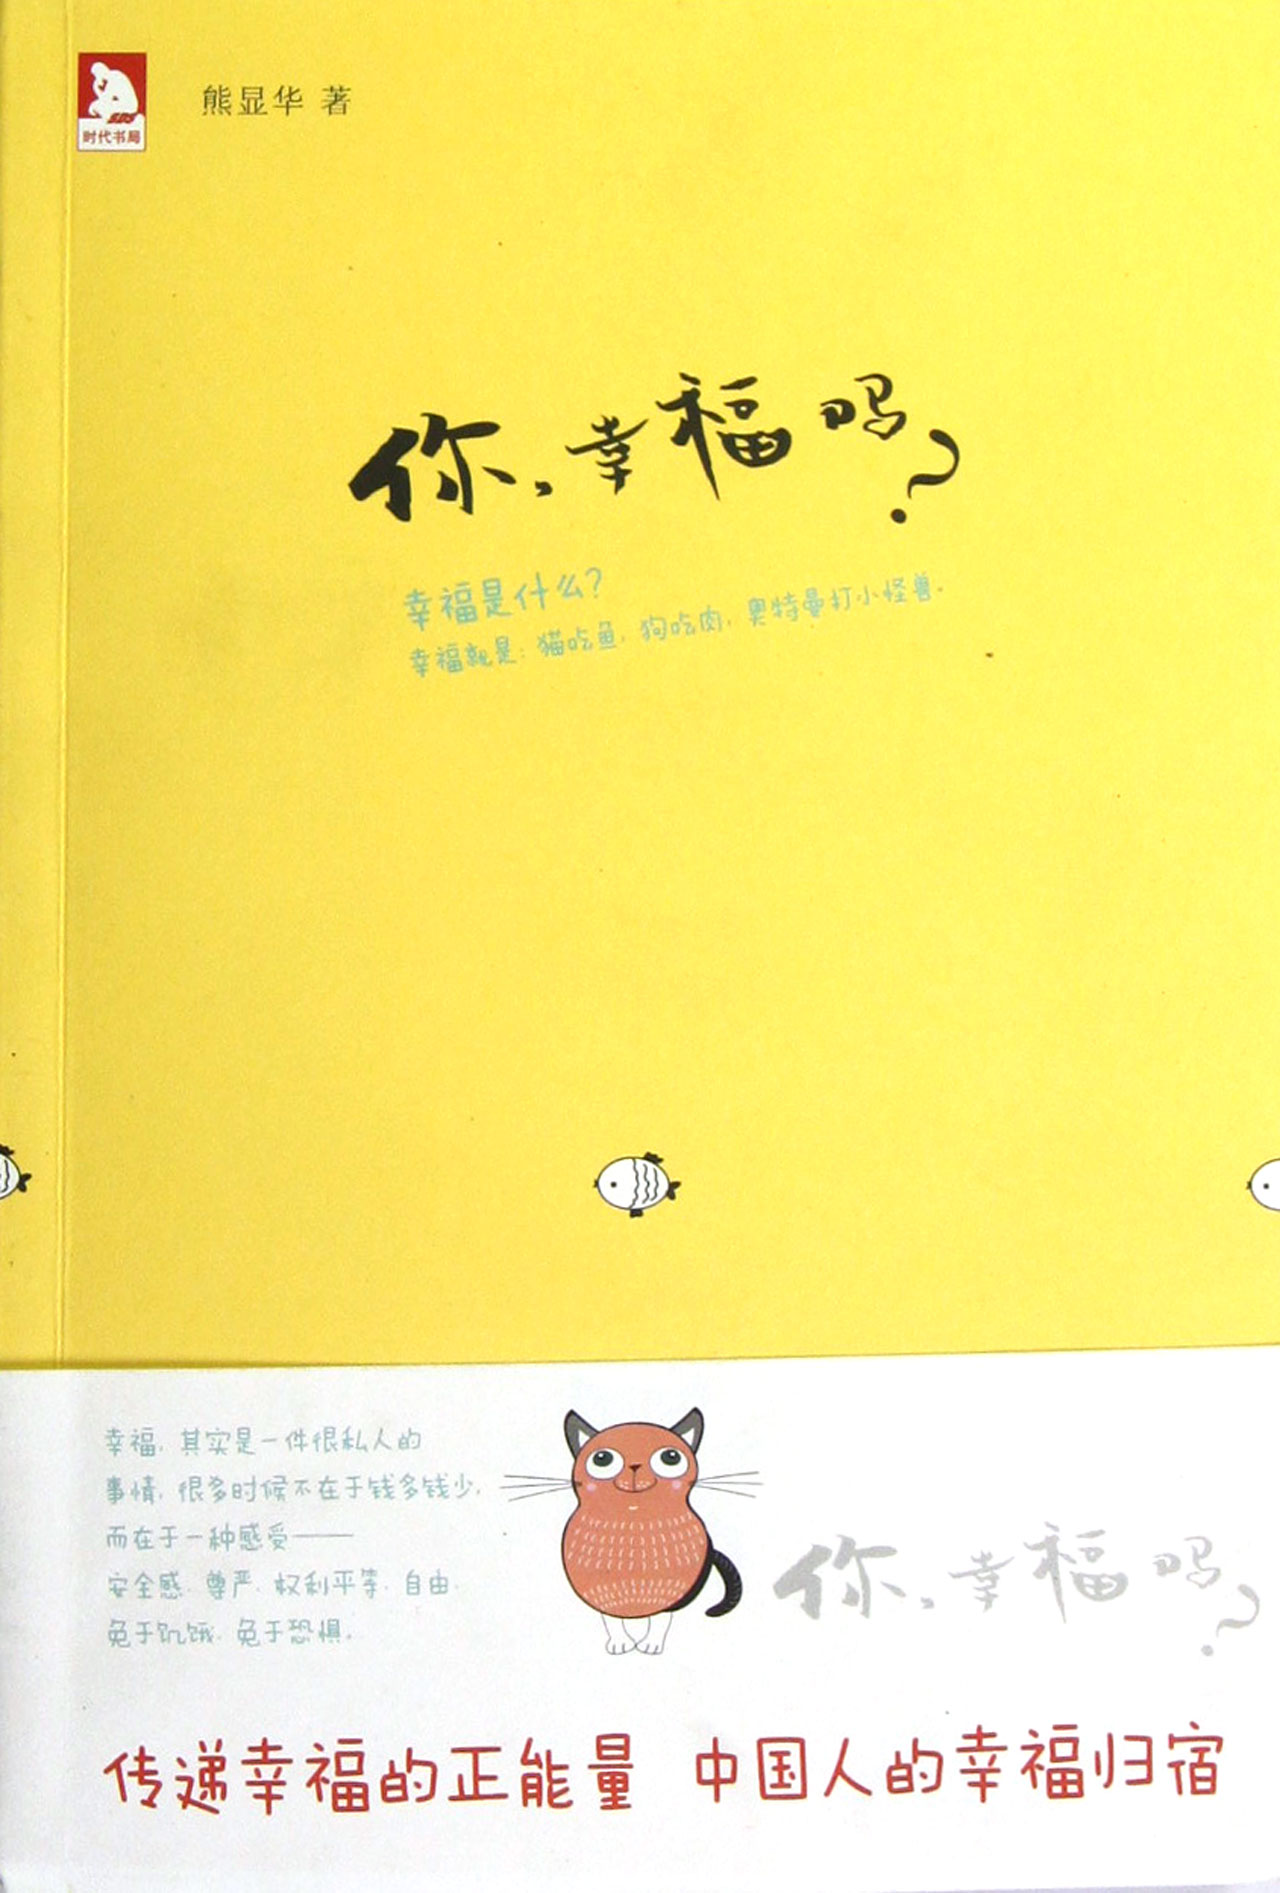 时代书局
熊显华 著
你，幸福吗？
幸福是什么？
幸福就是：猫吃鱼，狗吃肉，奥特曼打小怪兽。
幸福，其实是一件很私人的
事情，很多时候不在于钱多钱少，
而在于一种感受——
安全感、尊严、权利平等、自由、
免于饥饿、免于恐惧。
你，幸福吗？
传递幸福的正能量 中国人的幸福归宿